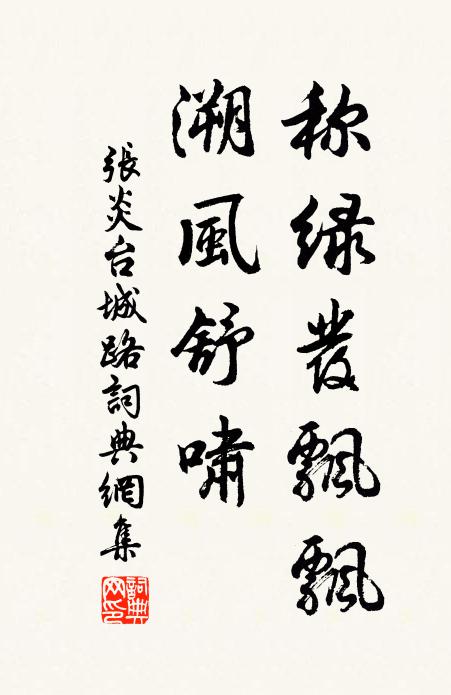 称綠發飄飄
溯風舒嘯
張炎台城路詞典網集
詞典
网印